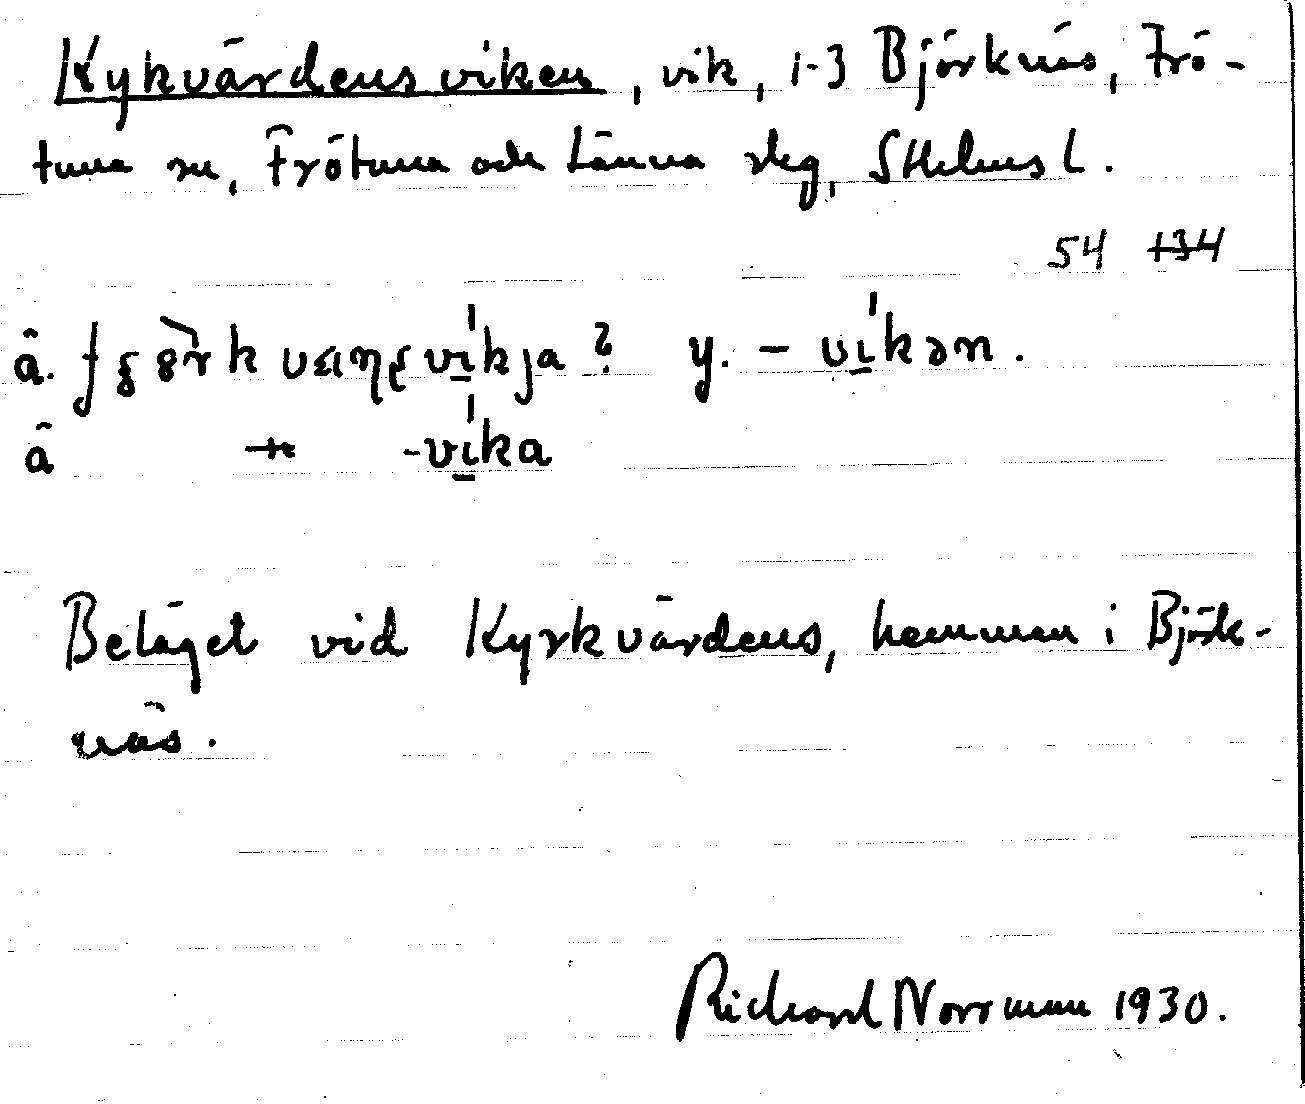 Kykvärdensviken, vik, 1-3 Björknäs, Frö-
tuna sn, Frötuna och Länna skg, Sthlms l.
54 134
â. y. - vi̱kən.
â -vi̱ka
Beläget vid Kyrkvärdens, hemman i Björk-
näs.
Richard Norrman 1930.